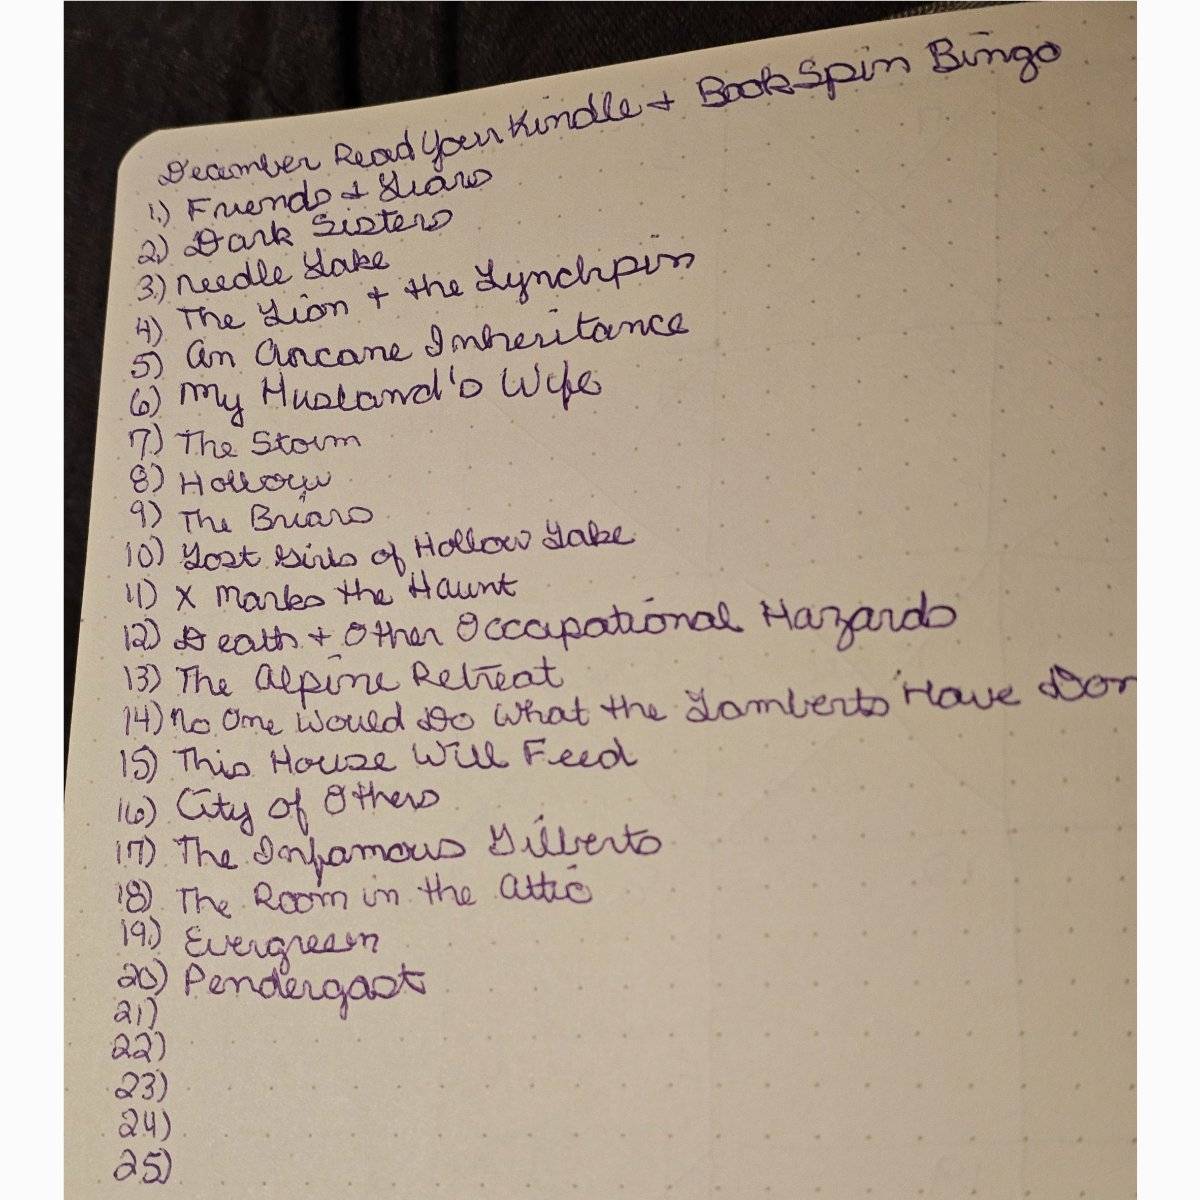 December Read Your Kindle + BookSpin Bingo
1.) Friends & Liars
2.) Dark Sisters
3.) Needle Lake
4) The Lion + the Lynchpin
5) An Arcane Inheritance
6) My Husband's Wife
7) The Storm
8) Hollow
9) The Briars
10) Lost Girls of Hollow Lake
11) X Marks the Haunt
12) Death + Other Occupational Hazards
13) The Alpine Retreat
14) No One Would Do What the Lamberts Have Don
15) This House Will Feed
16) City of Others
17) The Infamous Gilberts
18) The Room in the Attic
19.) Evergreen
20) Pendergast
21)
22)
23)
24)
25)